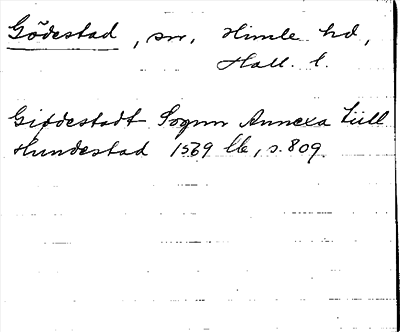 Gödestad, sn, Himle hd,
Hall. l.
Giødestadt Sognn Annexa tiill
Hunnestad 1569 lb, s. 809.